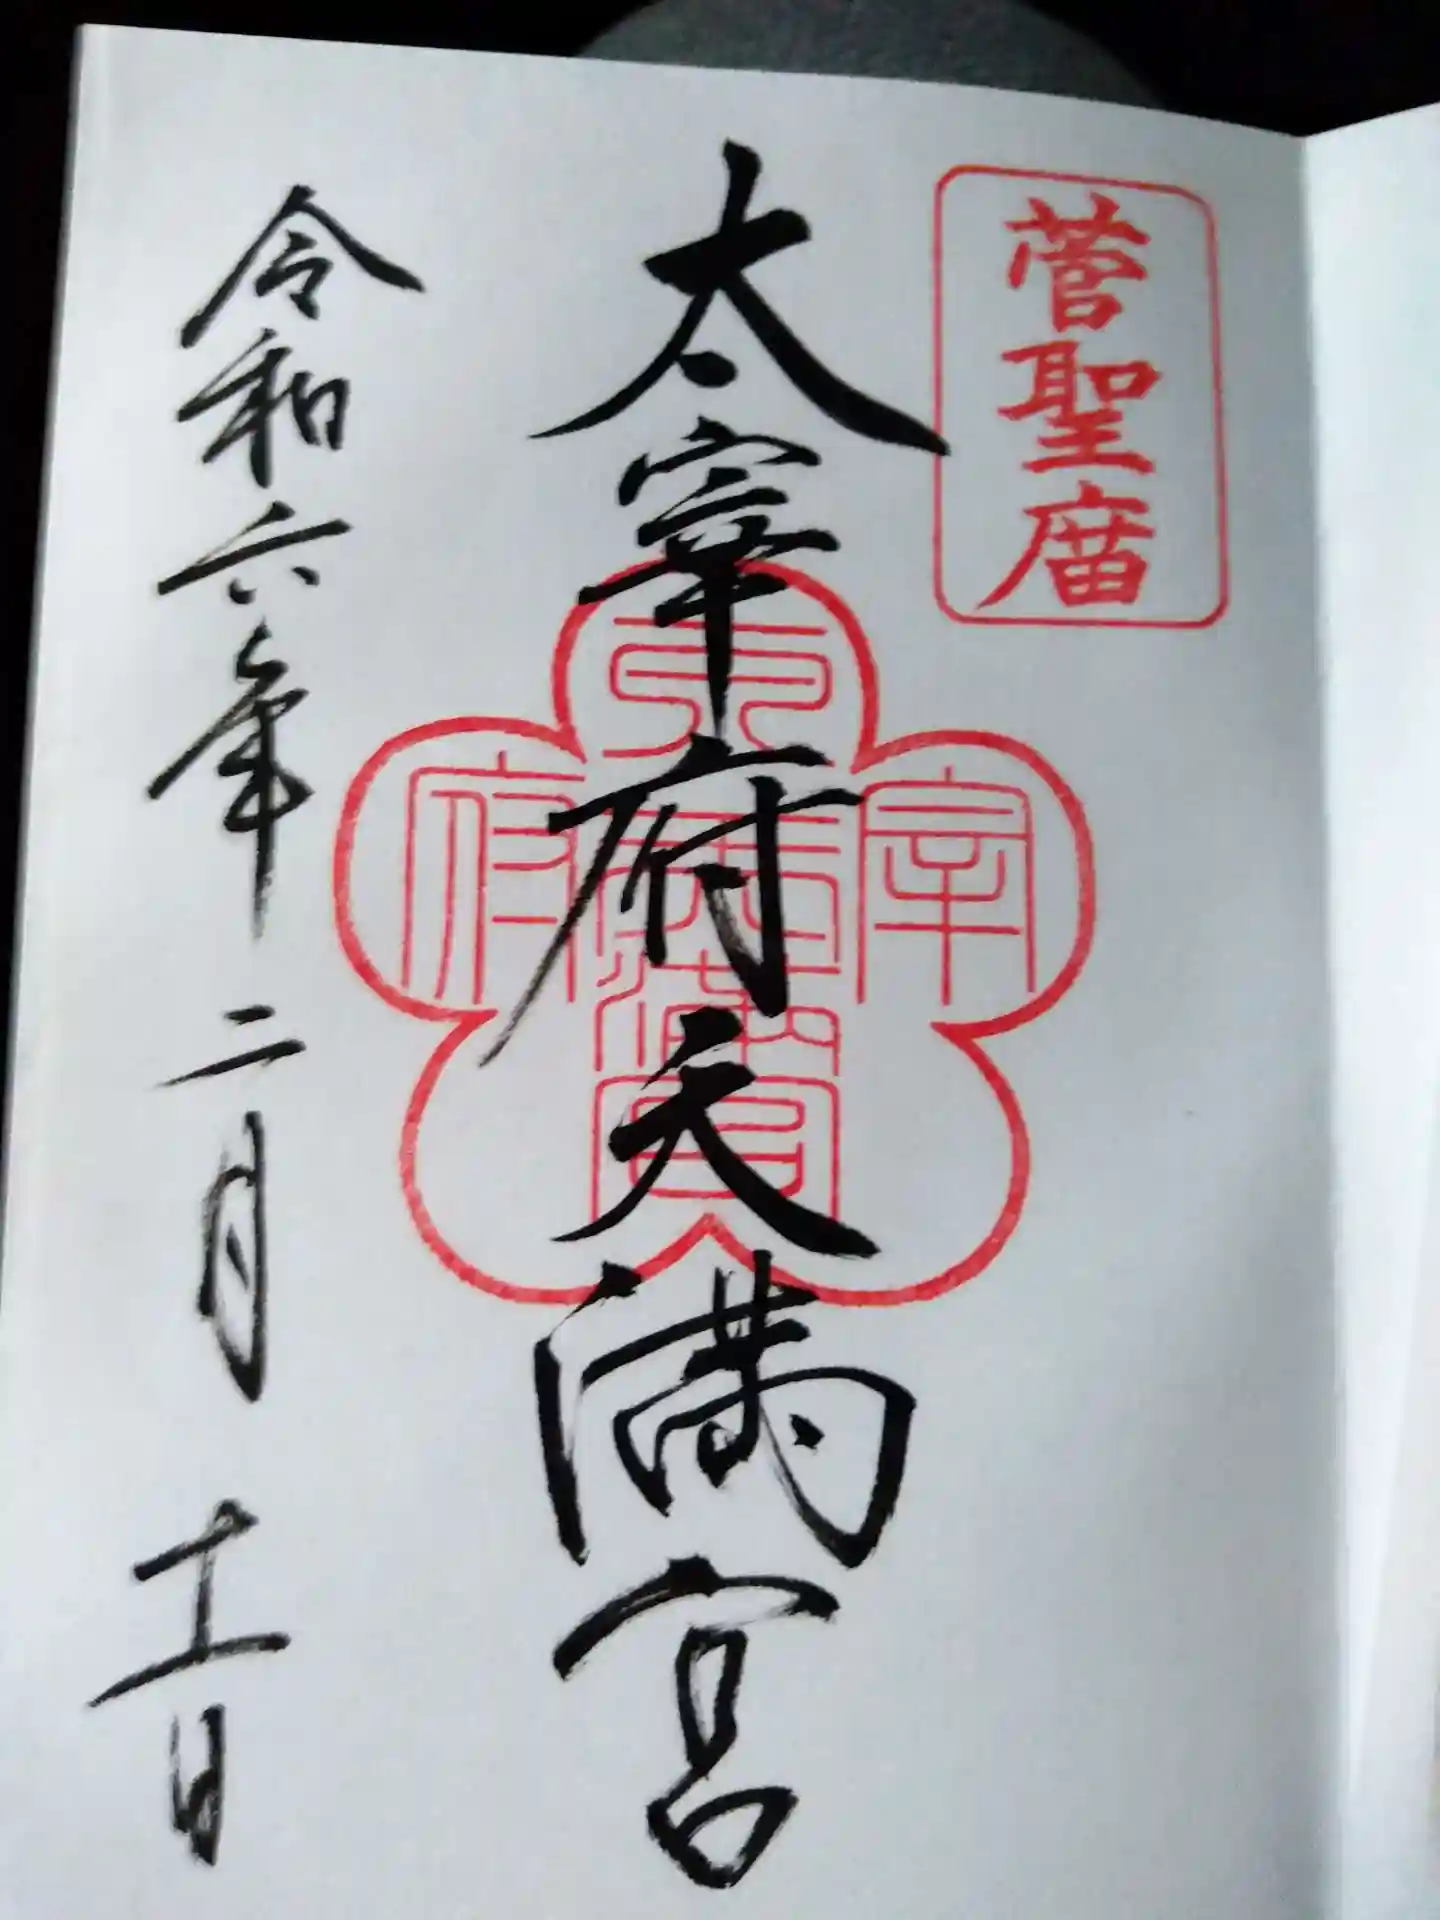 菅聖庿
太宰府天満宮
太宰府天満宮
令和六年二月十一日